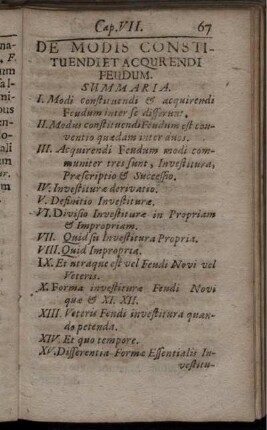 Cap. VII. 67
DE MODIS CONSTI-
TUENDI ET ACQURENDI
FEUDUM.
SUMMARIA.
I. Modi constituendi & acquirendi
Feudum inter se differunt.
II. Modus constituendi Feudum est con-
ventio quædam inter
III. Acquirendi Feudum modi com-
muniter tres sunt, Investitura,
Præscriptio & Successio.
IV. Investituræ derivatio.
V. Definitio Investituræ.
VI. Divisio Investituræ in Propriam
& Impropriam.
VII. Quid sit Investitura Propria.
VIII. Quid Impropria.
IX. Et utraque est vel Feudi Novi vel
Veteris.
X. Forma investituræ Feudi Novi
quæ & XI. XII.
XIII. Veteris Feudi investitura quan-
do petenda.
XIV. Et quo tempore.
XV. Differentia Formæ Essentialis In-
vestitu-